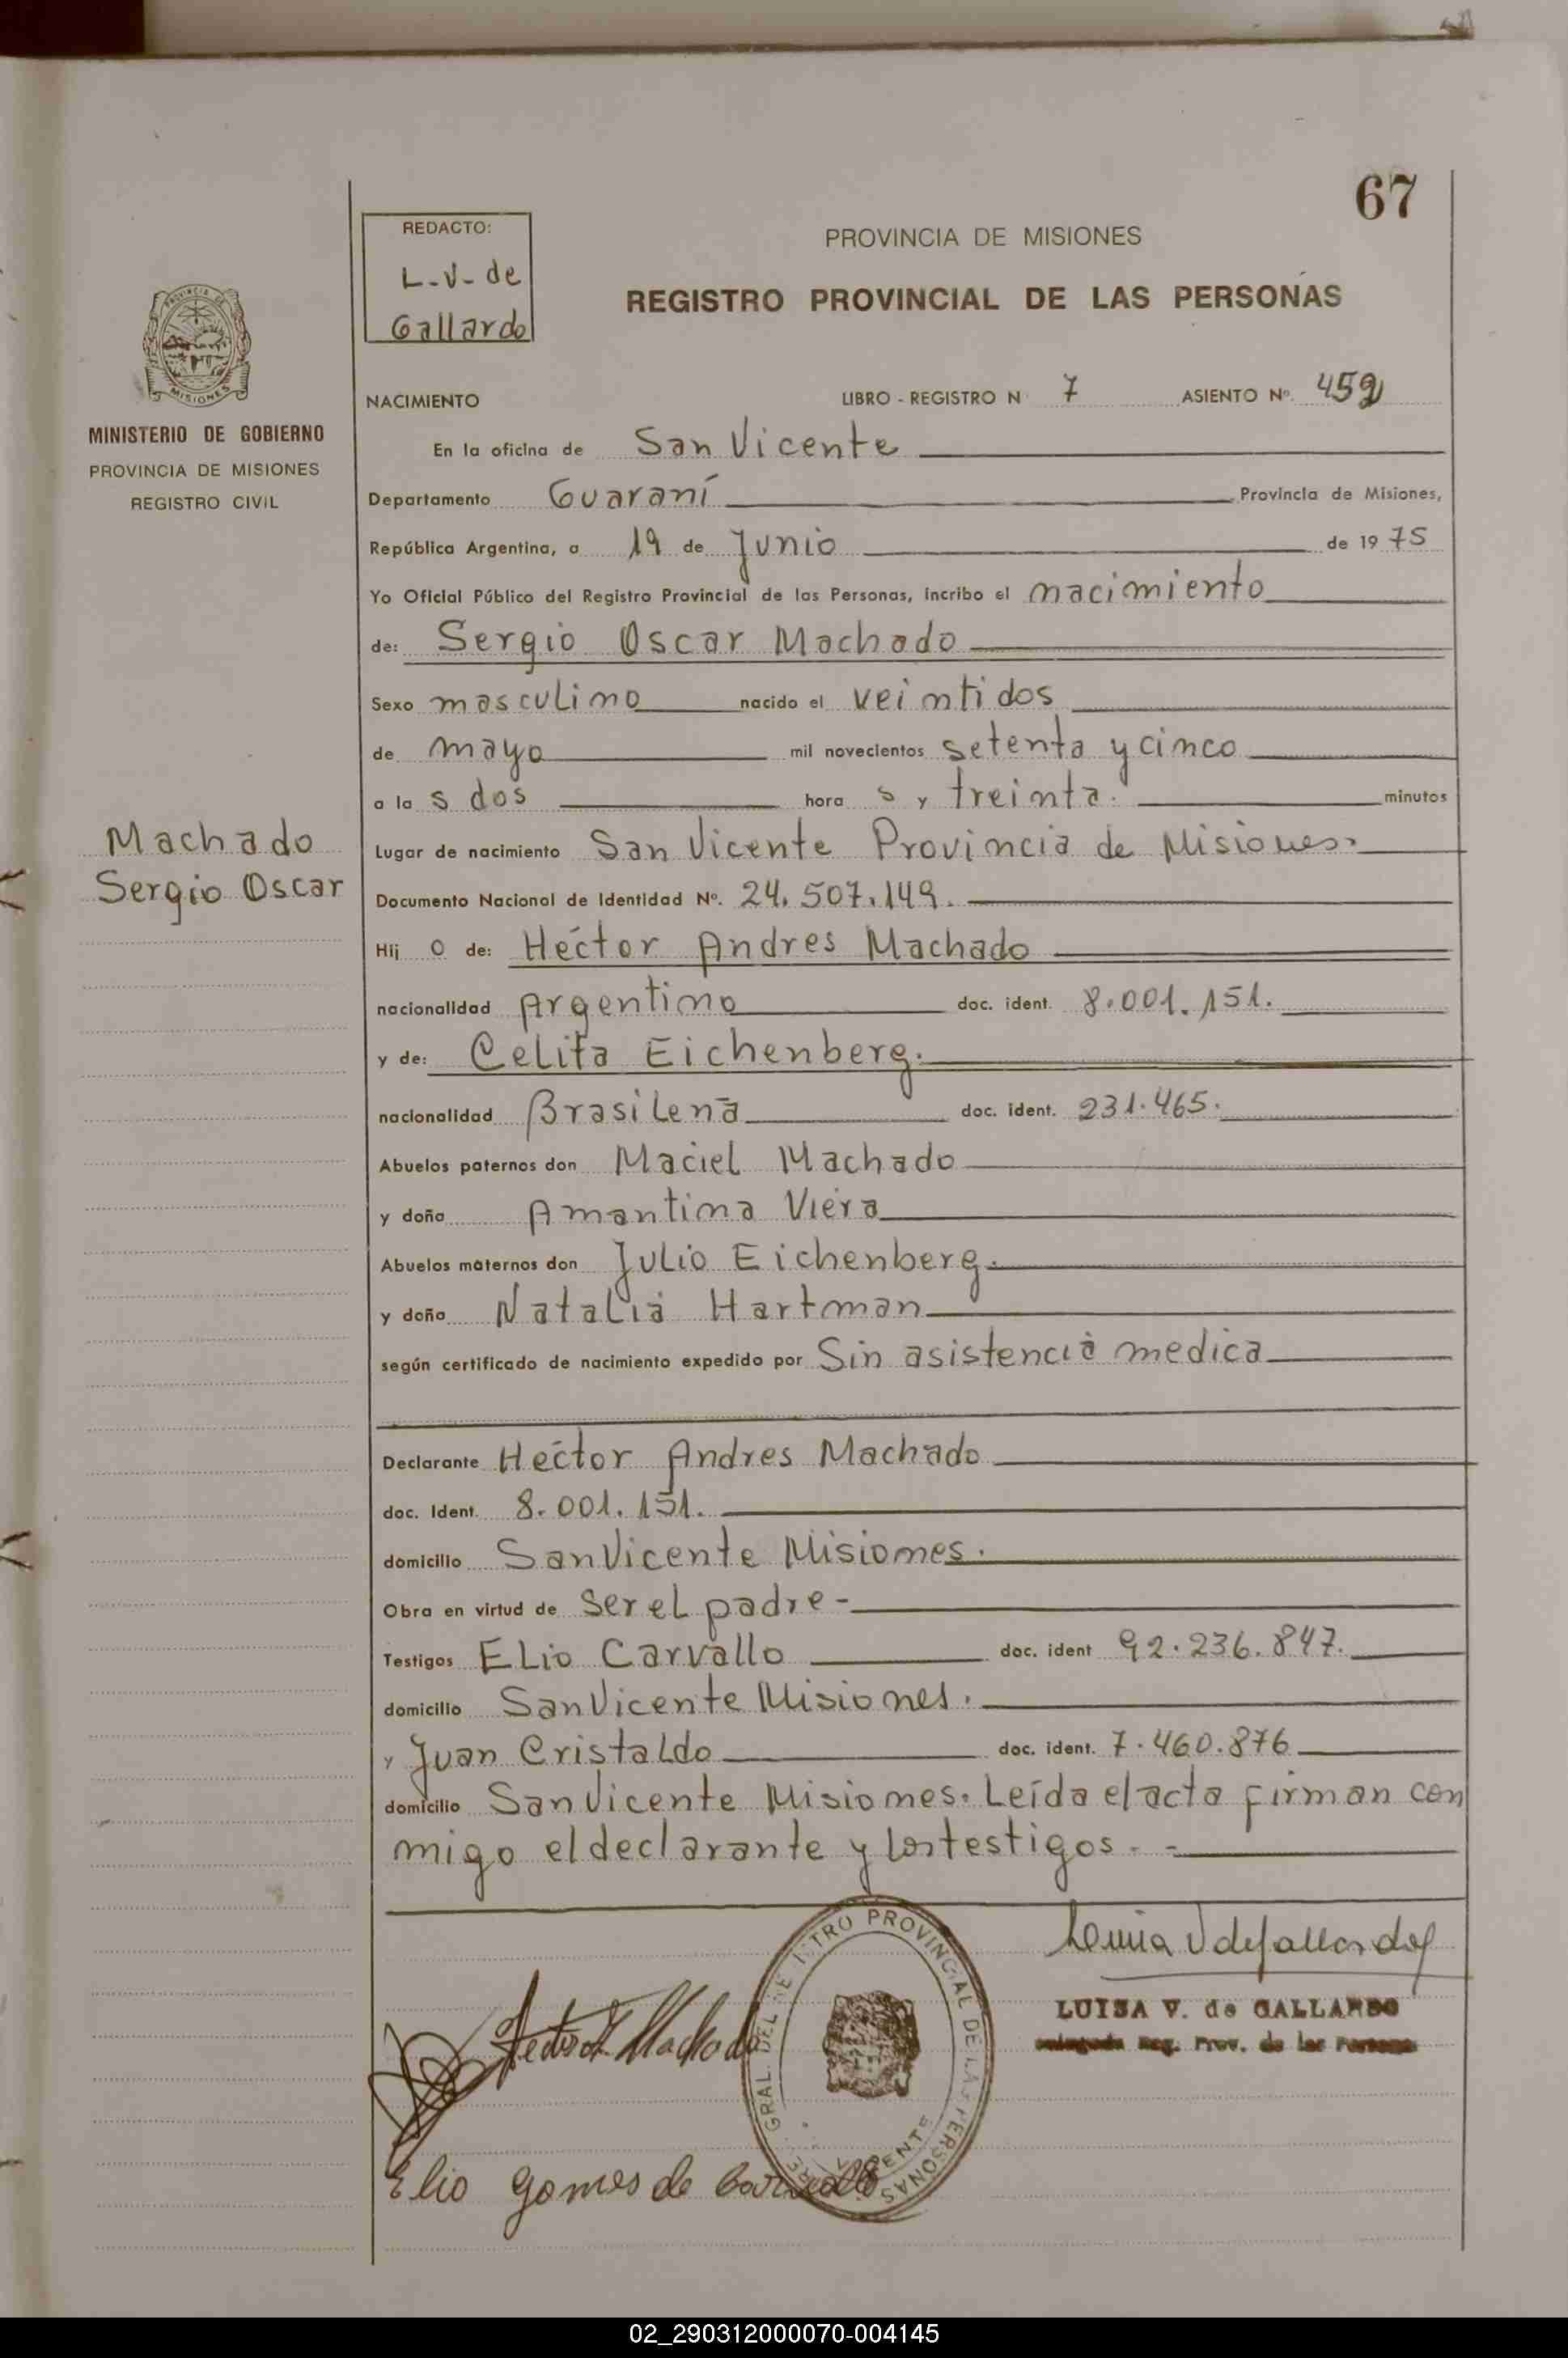 67
REDACTO:
L-V- de
Gallardo
PROVINCIA DE MISIONES
REGISTRO PROVINCIAL DE LAS PERSONAS
PROVINCIA DE
MISIONES
MINISTERIO DE GOBIERNO
PROVINCIA DE MISIONES
REGISTRO CIVIL
NACIMIENTO LIBRO - REGISTRO N 7 ASIENTO Nº. 459
En la oficina de San Vicente
Departamento Guaraní Provincia de Misiones,
República Argentina, a 19 de Junio de 1975
Yo Oficial Público del Registro Provincial de las Personas, incribo el nacimiento
de: Sergio Oscar Machado
Sexo masculino nacido el veintidos
de mayo mil novecientos setenta y cinco
a la s dos hora s y treinta. minutos
Machado
Sergio Oscar
Lugar de nacimiento San Vicente Provincia de Misiones.
Documento Nacional de Identidad Nº. 24.507.149.
Hij o de: Héctor Andres Machado
nacionalidad Argentino doc. ident. 8.001.151.
y de: Celita Eichenberg.
nacionalidad Brasilena doc. ident. 231.465.
Abuelos paternos don Maciel Machado
y doña Amantina Viera
Abuelos maternos don Julio Eichenberg.
y doña Natalia Hartman
según certificado de nacimiento expedido por Sin asistencia medica
Declarante Héctor Andres Machado
doc. Ident. 8.001.151.
domicilio San Vicente Misiones.
Obra en virtud de ser el padre-
Testigos Elio Carvallo doc. ident 92.236.847.
domicilio San Vicente Misiones.
y Juan Cristaldo doc. ident. 7.460.876
domicilio San Vicente Misiones. Leída el acta firman con
migo el declarante y los testigos. -
Luisa V de Gallardo
LUISA V. de GALLARDO
Delegada Reg. Prov. de las Personas
Hector A. Machado
GRAL. DEL REGISTRO PROVINCIAL DE LAS PERSONAS
Elio Gomes de Carvallo
02_290312000070-004145